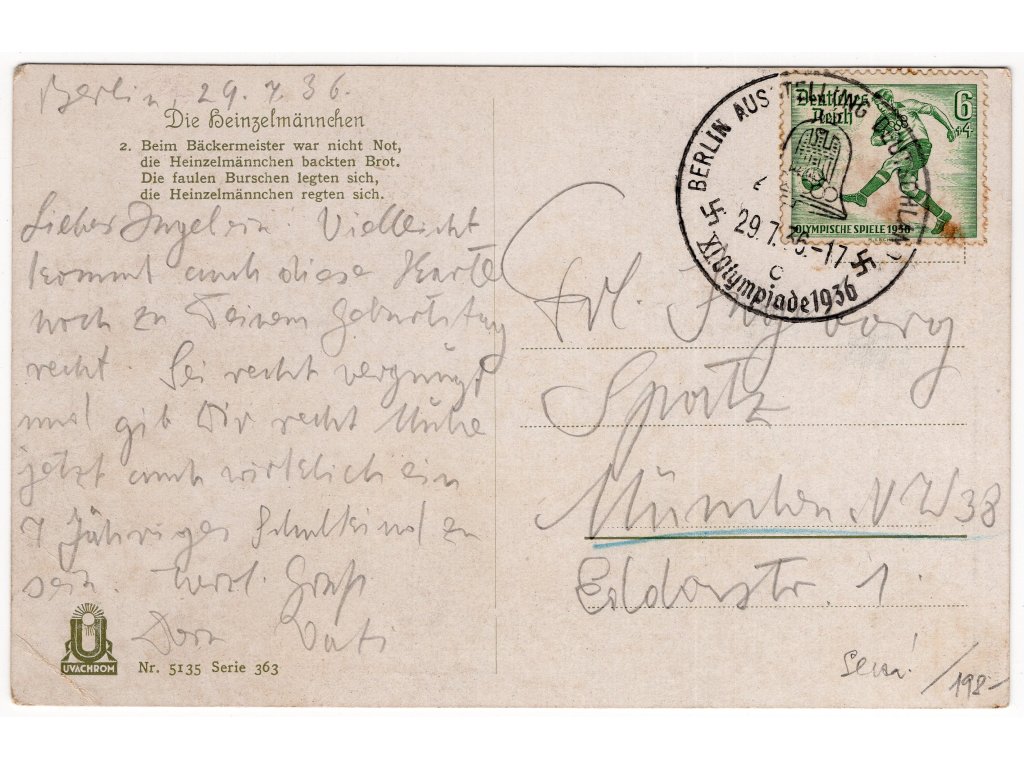 Berlin, 29.7.36.
Die Heinzelmännchen
2. Beim Bäckermeister war nicht Not,
die Heinzelmännchen backten Brot.
Die faulen Burschen legten sich,
die Heinzelmännchen regten sich.
Liebes Ingelein. Vielleicht
kommt auch diese Karte
noch zu Deinem Geburtstag
recht. Sei recht vergnügt
und gib Dir recht Mühe
jetzt auch wirklich ein
7 Jähriges Schulkind zu
sein. Herzl. Gruß
Dein Vati
UVACHROM
Nr. 5135 Serie 363
BERLIN AUSSTELLUNG DEUTSCHLAND
29.7.36.-17
c
XI. Olympiade 1936
Deutsches
Reich
6
+4
OLYMPISCHE SPIELE 1936
Frl. Ingeborg
Spatz
München N W 38
Str. 1.
/192-